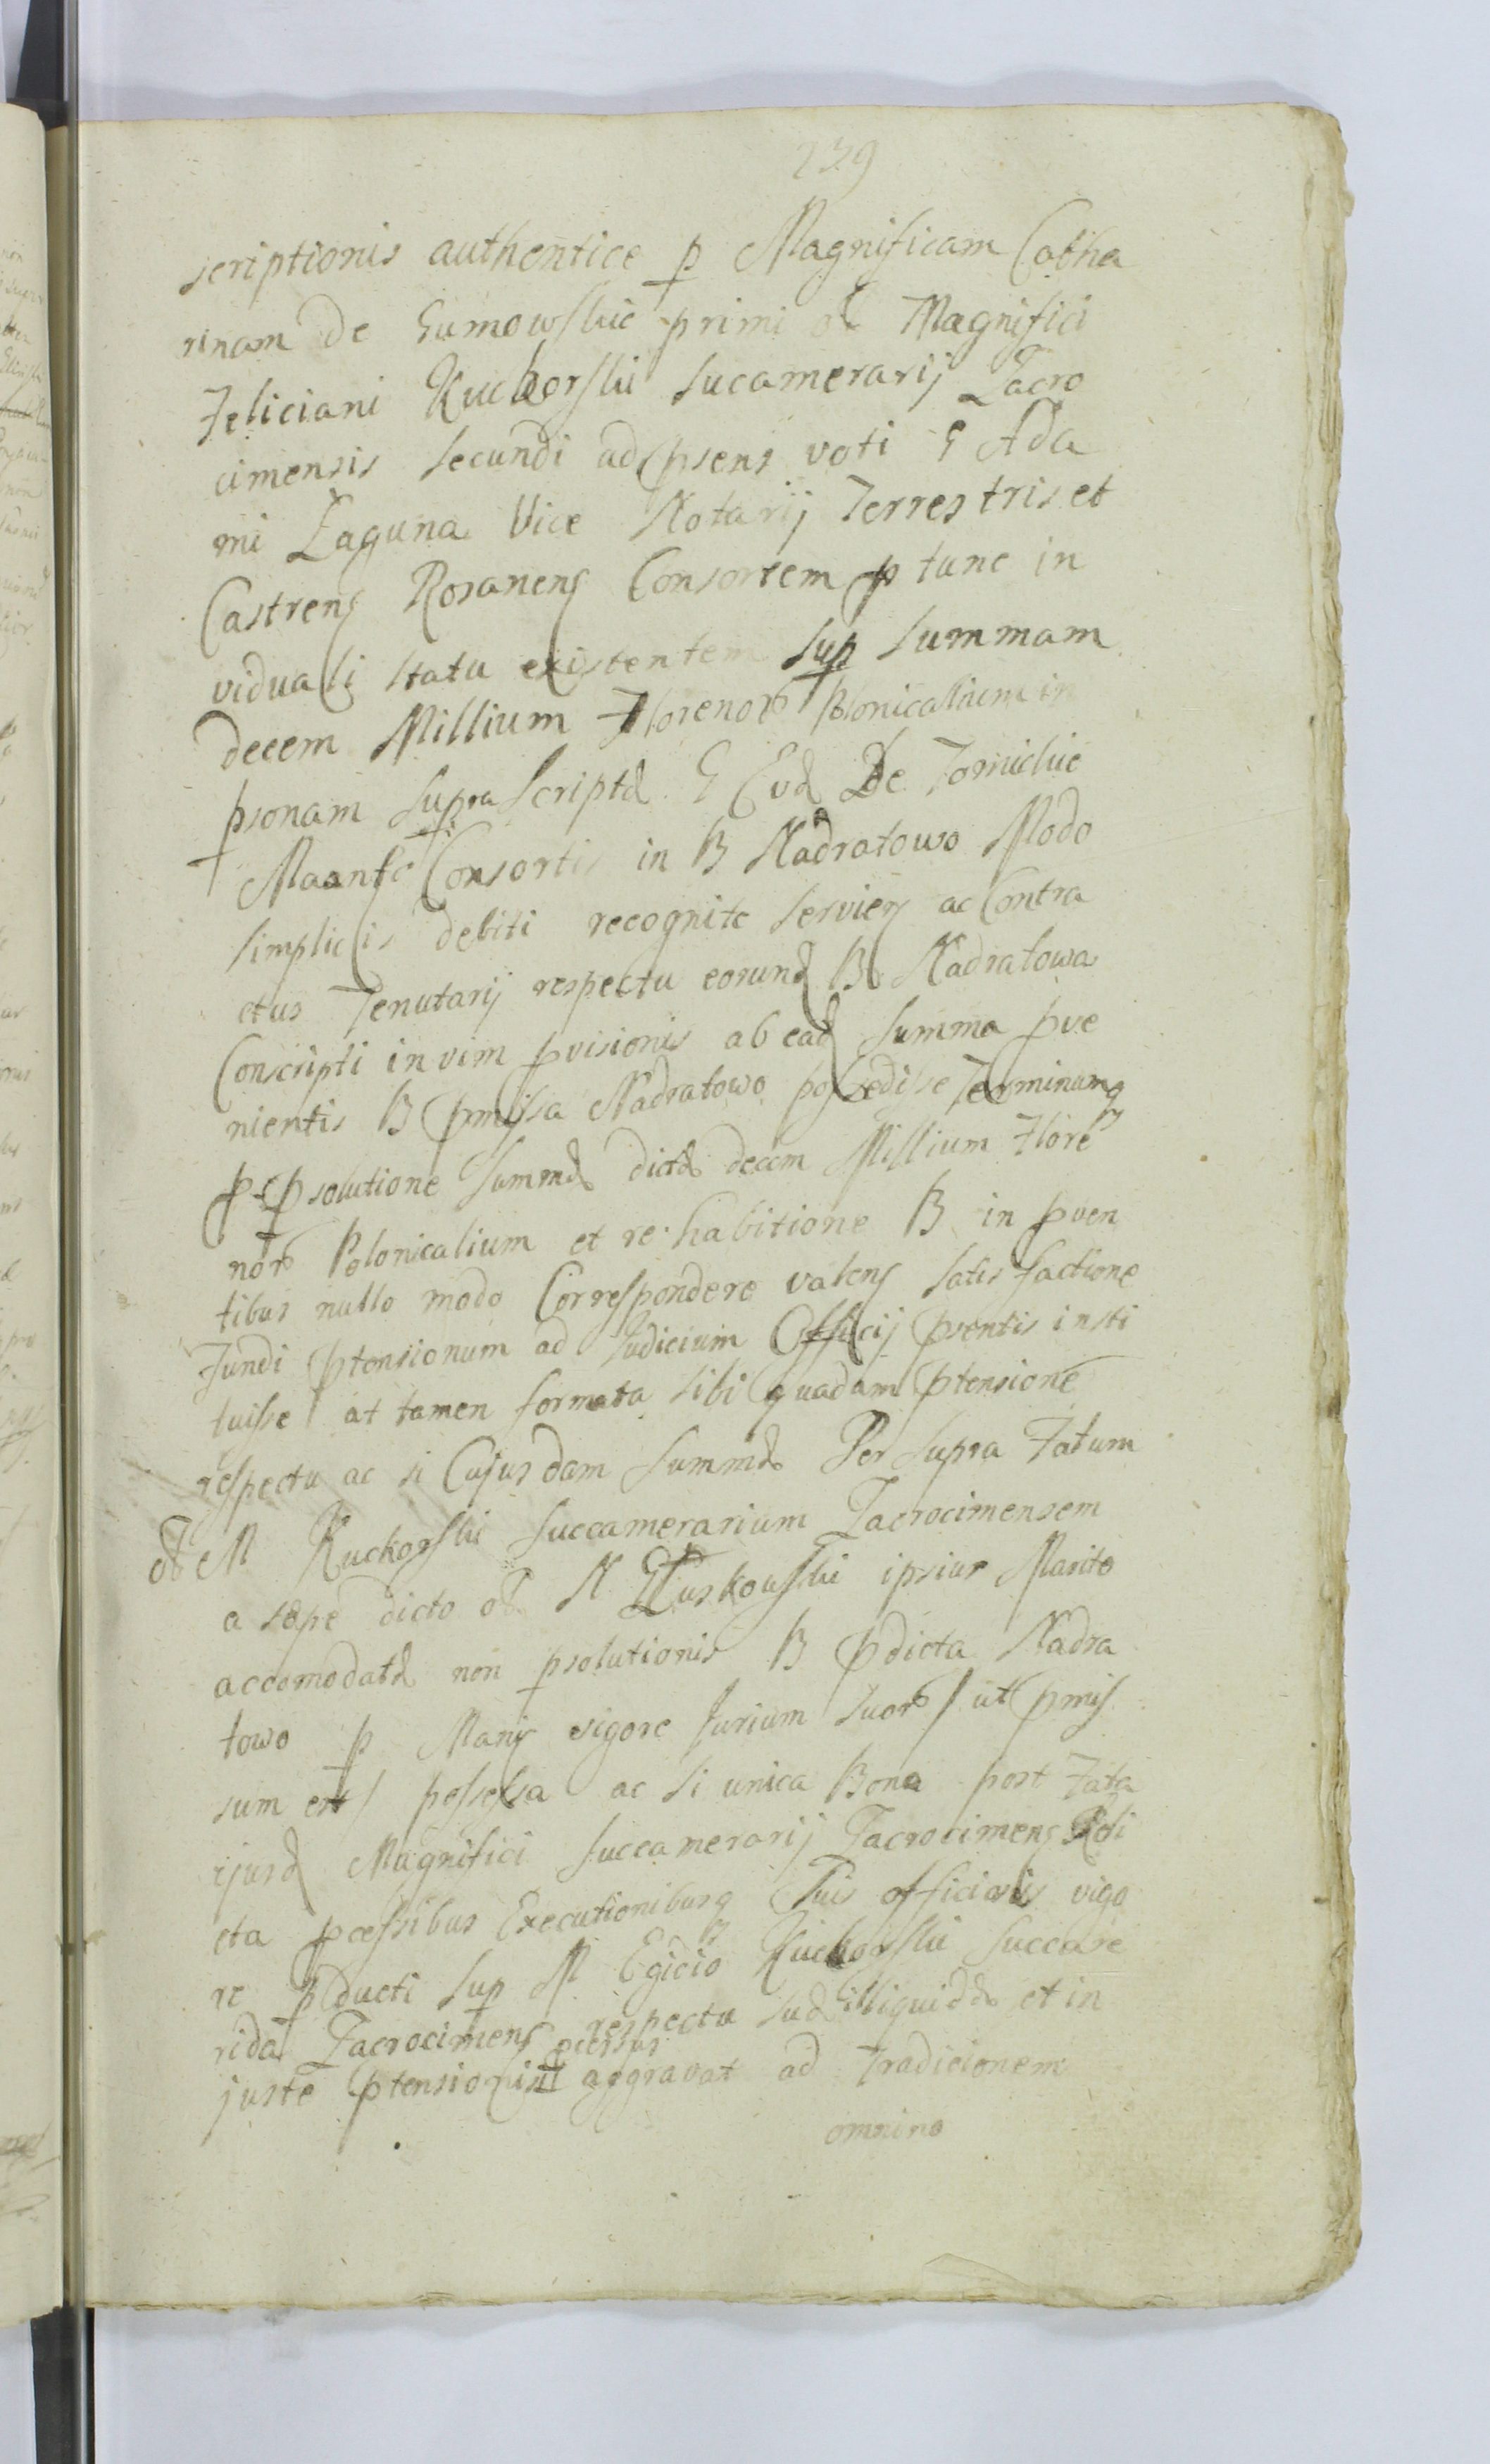 239
scriptionis authentice p Magnificam Catha
rinam de Gumowskie primi ol Magnifici
Feliciani Kuckorski sucamerarij Zacro
cimensis secundi ad psens voti G Ada
mi Łaguna Vice Notarij Terrestris et
Castrens Rosanens Consortem p tunc in
viduali statu existentem sup summam
decem Millium Florenor Polonicalium in
psonam supra scripta G Eva De Tomickie
Consortis in B Nadratowo Modo
simplicis debiti recognite serviens ac Contra
ctus Tenutarij respectu eorund B Nadratowa
Conscripti in vim pvisionis ab ead summa pve
nientis B pmissa Nadratowo possedisse Terminumq
p psolutione summæ dictæ decem Millium Flore
nor Polonicalium et re habitione B in pven
tibus nullo modo Correspondere valens satis factione
Fundi ptensionum ad Judicium Officij psentis insti
tuisse at tamen formata sibi quadam ptensione
respectu ac si Cujusdam summæ Per supra Fatum
ol M Kuckorski Succamerarium Zacrocimensem
a sæpe dicto ol N Pluskowski ipsius Marito
accomodatæ non psolutionis B pdicta Nadra
towo p vigore Jurium suor / ut pmis
sum est / possessa ac si unica Bona post Fata
ejusd Magnifici Succamerarij Zacrocimens Reli
cta pcessibus Executionibusq Suis officiosis vigo
re pducti sup M Kuckorski Succame
rida Zacrocimens respectu suæ illiquidæ et in
juste ptensionis pcessus aggravat ad Tradicionem
omnino